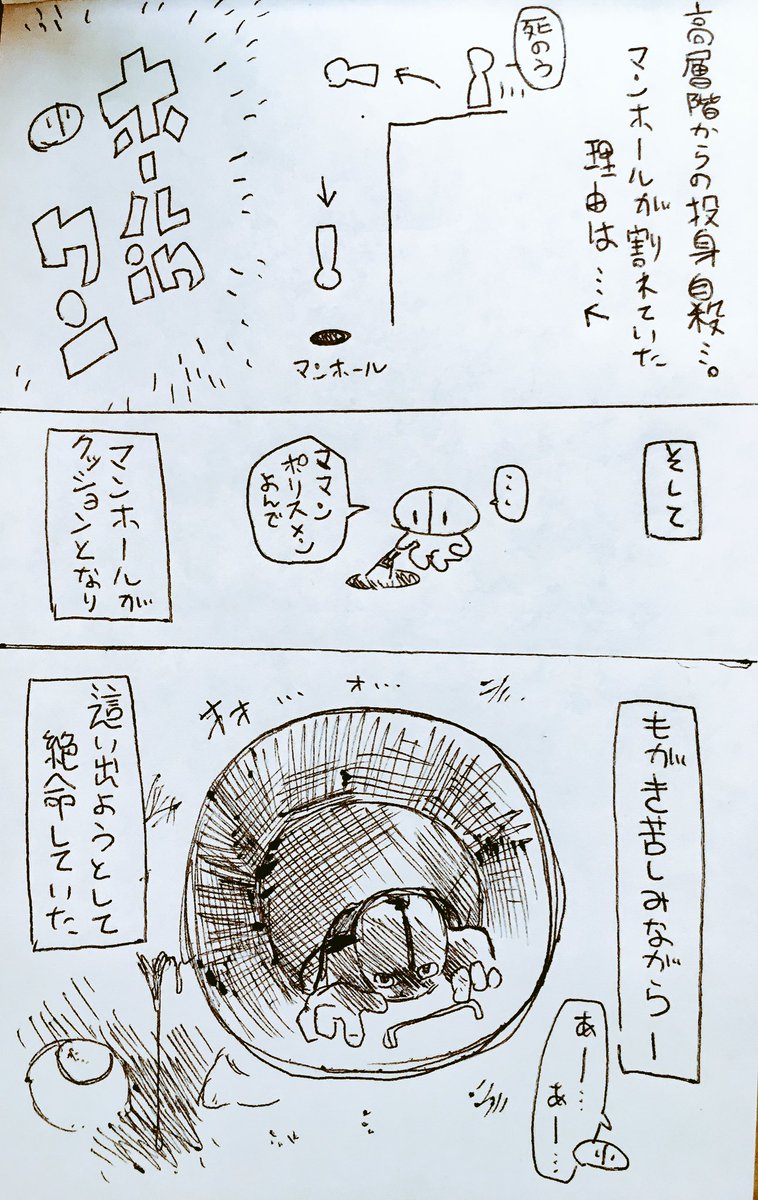 高層階からの投身自殺…。
マンホールが割れていた
理由は…
死のう
マンホール
ホールin
ワン
そして
…
ママン
ポリスメン
よんで
マンホールが
クッションとなり
もがき苦しみながらー
オオ…
オ…
あー…
あー…
這い出ようとして
絶命していた